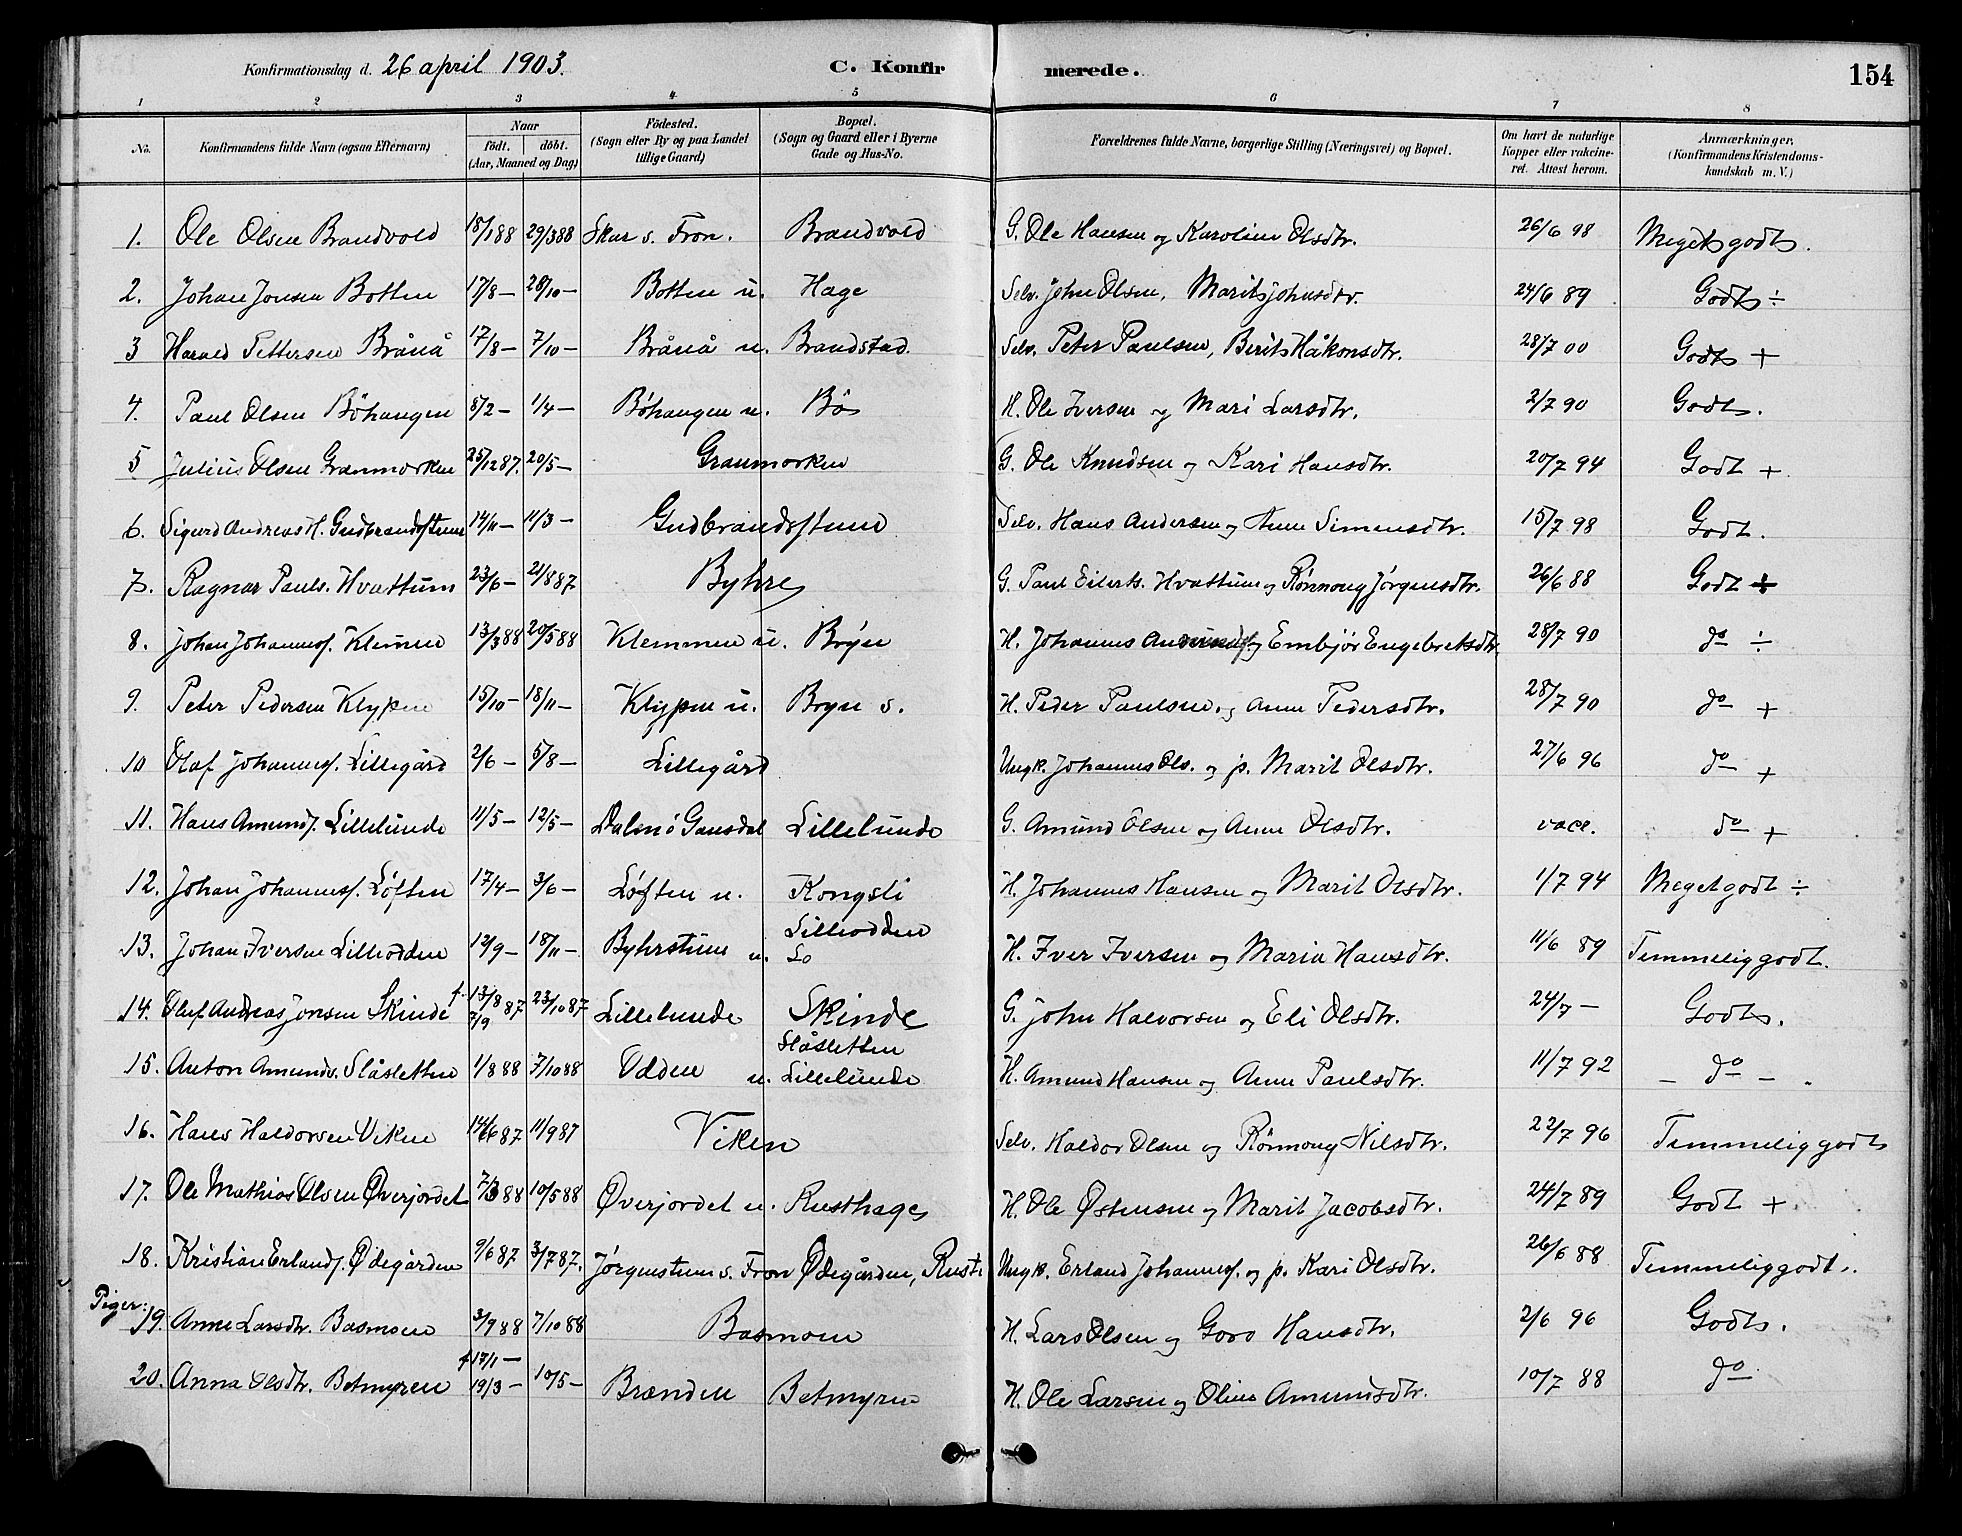 Konfirmationsdag d. 26 april 1903. C. Konfirmerede. 154
1 2 3 4 5 6 7 8
No. Konfirmandens fulde Navn (ogsaa Efternavn) Naar födt. döbt. (Aar, Maaned og Dag) Födested. (Sogn eller By og paa Landet tillige Gaard) Bopæl. (Sogn og Gaard eller i Byerne Gade og Hus-No. Forældrenes fulde Navne, borgerlige Stilling (Næringsvei) og Bopæl. Om havt de naturlige Kopper eller vakcineret. Attest herom. Anmærkninger. (Konfirmandens Kristendomskundskab m. V.)
1. Ole Olsen Brandvold 18/1 88 29/3 88 Skar s. Fron. Brandvold G. Ole Hansen og Karoline Olsdtr. 26/6 98 Meget godt.
2. Johan Jonsen Botten 17/8 — 28/10 — Botten u. Hage Selv. John Olsen, Marit Johnsdtr. 24/6 89 Godt ÷
3 Harald Pettersen Brånå 17/8 — 7/10 — Brånå u. Brandstad. Selv. Peter Paulsen, Berit Håkonsdtr. 28/7 00 Godt +
4. Paul Olsen Böhaugen 8/2 — 1/4 — Böhaugen u. Bö H. Ole Iversen og Mari Larsdtr. 2/7 90 Godt.
5 Julius Olsen Granmorken 25/12 87. 20/5 — Granmorken G. Ole Knudsen og Kari Hansdtr. 20/7 94 Godt +
6. Sigurd Andreas H. Gudbrandstuen 14/11 — 11/3 — Gudbrandstuen Selv. Hans Andersen og Anne Simensdtr. 15/7 98 Godt.
7. Ragnar Pauls. Hvattum 23/6 — 21/8 87 Byhre G. Paul Eilerts. Hvattum og Rönnoug Jörgensdtr. 26/6 88 Godt +
8. Johan Johannesf. Klemen 13/3 88 20/5 88 Klemmen u. Bryn H. Johannes Amundsf. og Embjør Engebretsdtr 28/7 90 do ÷
9. Peter Pedersen Klypen 15/10 — 18/11 — Klypen u. Bryn s. H. Peder Paulsen. og Anne Pedersdtr. 28/7 90 do +
10 Olaf Johannesf. Lillegård 2/6 — 5/8 — Lillegård Ungk. Johannes Ols. og p. Marit Olsdtr. 27/6 96 do +
11. Hans Amundf. Lillelunde 11/5 — 12/5 — Dalmö Gausdal Lillelunde G. Amund Olsen og Anne Olsdtr. vacc. do +
12. Johan Johannesf. Løften 17/4 — 3/6 — Løften u. Kongsli H. Johannes Hansen og Marit Olsdtr. 1/7 94 Meget godt ÷
13. Johan Iversen Lilleodden 12/9 — 18/11 — Byhrstuen u. Lilleodden Lo H. Iver Iversen og Maria Hansdtr. 11/6 89 Temmelig godt.
14. Oluf Andreas Jonsen Skinde f. 13/8 87 7/9 23/10 87 Lillelunde Skinde G. John Halvorsen og Eli Olsdtr. 24/7 — Godt.
15. Anton Amunds. Slåsletten 1/8 88 7/10 88 Odden u. Slåsletten Lillelunde H. Amund Hansen og Anne Paulsdtr. 11/7 92 — do — .
16. Hans Haldorsen Viken 14/6 87 11/9 87 Viken Selv. Haldor Olsen og Rönnoug Nilsdtr. 22/7 96 Temmelig godt
17. Ole Mathias Olsen Øverjordet 7/3 88 10/5 88 Øverjordet u. Rusthage H. Ole Østensen og Marit Jacobsdtr. 24/7 89 Godt +
18. Kristian Erlandf. Ødegården 9/6 87 3/7 87. Jörgenstuen s. Fron Ødegården, Rusti Ungk. Erland Johannesf. og p. Kari Olsdtr. 26/6 88 Temmelig godt.
Piger:
19. Anne Larsdtr. Basmoen 3/9 88 7/10 88 Basmoen H. Lars Olsen og Goro Hansdtr. 2/6 96 Godt.
20. Anna Olsdtr. Betmyren f 17/1 — 19/3 — 10/5 — Brænden Betmyren H. Ole Larsen og Oline Amundsdtr. 10/7 88 do